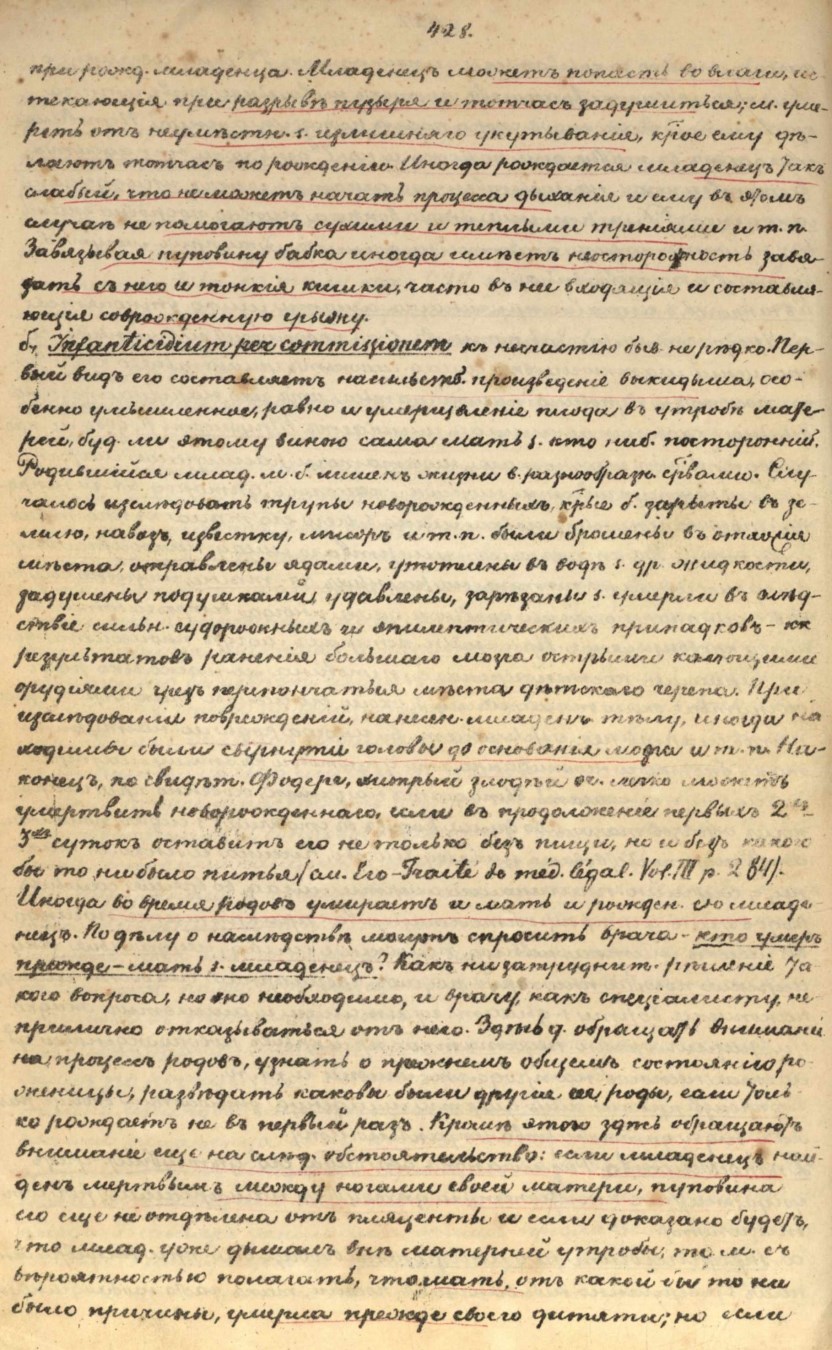 428.
при рожд. младенца. Младенецъ можетъ попасть во влаги, ис-
текающія при разрывѣ пузыря и тотчасъ задушиться; м. уме-
реть отъ неумѣстн. s. излишняго укутыванія, кр̃ое ему дѣ-
лаютъ тотчасъ по рожденіи. Иногда рождается младенецъ такъ
слабый, что не можетъ начать процесса дыханія и ему въ этомъ
случаѣ не помогаютъ сухими и теплыми треніями и т. п.
Завязывая пуповину бабка иногда имѣетъ неосторожность завя-
зать съ него и тонкія кишки, часто въ нее входящія и составля-
ющія соврожденную грыжу.
б, Infanticidium per commissionem къ несчастію быв. не рѣдко. Пер-
вый видъ его составляетъ насильств. произведеніе выкидыша, осо-
бенно умышленное, равно и умерщвленіе плода въ утробѣ мате-
рей, буд. ли этому виною сама мать s. кто ниб. посторонній.
Родившійся млад. м. б. лишенъ жизни в. разнообразн. ср̃вами. Слу-
чалось изслѣдовать трупы новорожденныхъ, кр̃ые б. зарыты въ зе-
млю, навозъ, известку, мусоръ и т. п. были брошены въ отхожія
мѣста, отравлены ядами, утоплены въ водѣ s. др. жидкости,
задушены подушками, удавлены, зарѣзаны s. умерли въ слѣд-
ствіе сильн. судорожныхъ и эпилептическихъ припадковъ - кк
результатовъ раненія большаго мозга острыми колющими
орудіями чрезъ перепончатыя мѣста дѣтскаго черепа. При
изслѣдованіи поврежденій, нанесен. младенч. тѣлу, иногда на
ходимы были свернутіе головы до основанія мозга и т. п. На-
конецъ, по свидѣт. Фодере, хитрый злодѣй оч. легко можетъ
умертвить новорожденнаго, если въ продолженіе первыхъ 2хъ
3хъ сутокъ оставитъ его не только безъ пищи, но и безъ какого
бы то ни было питья (см. Его - Traité de méd. légal. Vol. III p. 284).
Иногда во время родовъ умираетъ и мать и рожден. ею младе-
нецъ. По дѣлу о наслѣдствѣ могутъ спросить врача - кто умеръ
прежде - мать s. младенецъ? Какъ ни затруднит. рѣшеніе та
кого вопроса, но оно необходимо, и врачу, какъ спеціалисту, не
прилично отказываться отъ него. Здѣсь д. обращать вниманіе
на процессъ родовъ, узнать о прежнемъ общемъ состояніи ро-
женицы, развѣдать каковы были другіе ея роды, если толь
ко рождаетъ не въ первый разъ. Кромѣ этого здѣсь обращаютъ
вниманіе еще на слѣд. обстоятельство: если младенецъ най-
денъ мертвымъ между ногами своей матери, пуповина
его еще не отдѣлена отъ плаценты и если доказано будетъ,
что млад. уже дышалъ внѣ матерней утробы, то м. съ
вѣроятностью полагать, что мать, отъ какой бы то ни
было причины, умерла прежде своего дитяти; но если